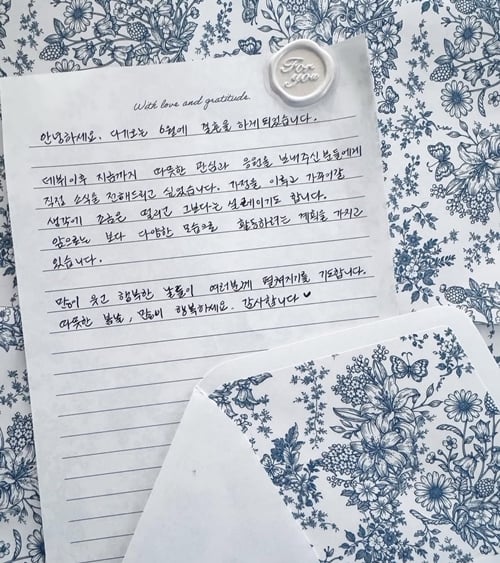 For
You
With love and gratitude.
안녕하세요. 다가오는 6월에 결혼을 하게 되었습니다.
데뷔 이후 지금까지 따뜻한 관심과 응원을 보내주신 분들에게
직접 소식을 전해드리고 싶었습니다. 가정을 이루고 가꾸어갈
생각에 조금은 떨리고 그보다는 설레이기도 합니다.
앞으로는 보다 다양한 모습으로 활동하려는 계획을 가지고
있습니다.
많이 웃고 행복한 날들이 여러분께 펼쳐지기를 기도합니다.
따뜻한 봄날, 많이 행복하세요. 감사합니다♥